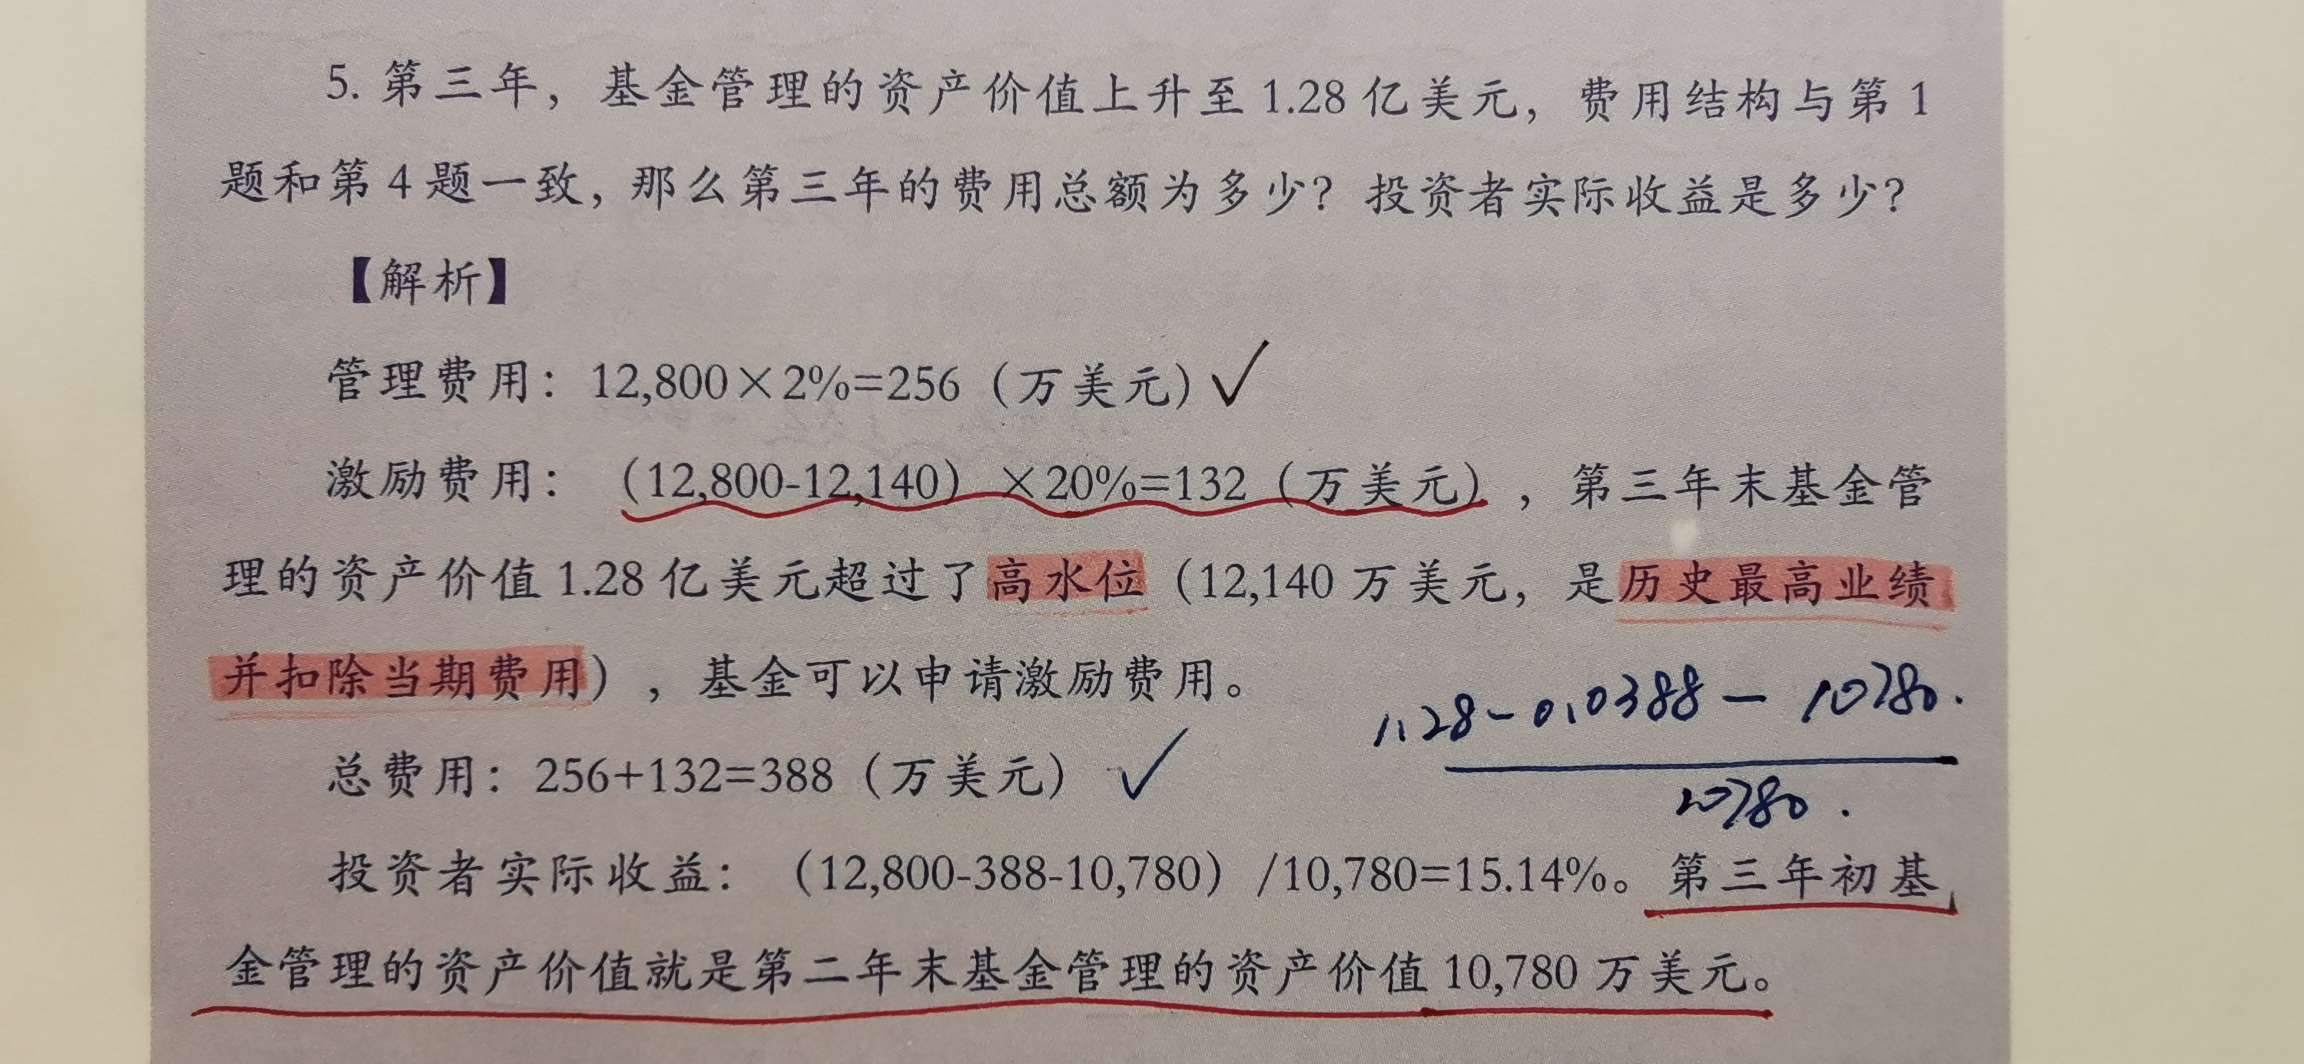 5. 第三年，基金管理的资产价值上升至 1.28 亿美元，费用结构与第 1
题和第 4 题一致，那么第三年的费用总额为多少？投资者实际收益是多少？
【解析】
管理费用：12,800×2%=256（万美元）✓
激励费用：（12,800-12,140）×20%=132（万美元），第三年末基金管
理的资产价值 1.28 亿美元超过了高水位（12,140 万美元，是历史最高业绩
并扣除当期费用），基金可以申请激励费用。
1.28-0.0388-10780.
10780.
总费用：256+132=388（万美元）✓
投资者实际收益：（12,800-388-10,780）/10,780=15.14%。第三年初基
金管理的资产价值就是第二年末基金管理的资产价值 10,780 万美元。